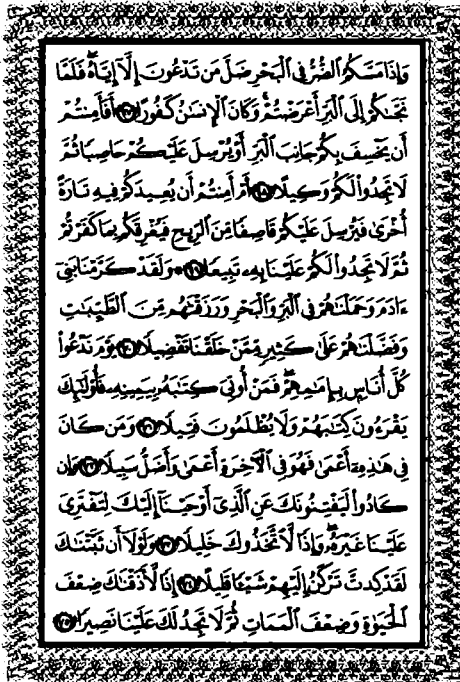 وَإِذَا مَسَّكُمُ ٱلضُّرُّ فِي ٱلۡبَحۡرِ ضَلَّ مَن تَدۡعُونَ إِلَّآ إِيَّاهُۖ فَلَمَّا
نَجَّىٰكُمۡ إِلَى ٱلۡبَرِّ أَعۡرَضۡتُمۡۚ وَكَانَ ٱلۡإِنسَٰنُ كَفُورًا ٦٧ أَفَأَمِنتُمۡ
أَن يَخۡسِفَ بِكُمۡ جَانِبَ ٱلۡبَرِّ أَوۡ يُرۡسِلَ عَلَيۡكُمۡ حَاصِبٗا ثُمَّ
لَا تَجِدُواْ لَكُمۡ وَكِيلًا ٦٨ أَمۡ أَمِنتُمۡ أَن يُعِيدَكُمۡ فِيهِ تَارَةً
أُخۡرَىٰ فَيُرۡسِلَ عَلَيۡكُمۡ قَاصِفٗا مِّنَ ٱلرِّيحِ فَيُغۡرِقَكُم بِمَا كَفَرۡتُمۡ
ثُمَّ لَا تَجِدُواْ لَكُمۡ عَلَيۡنَا بِهِۦ تَبِيعٗا ٦٩ ۞ وَلَقَدۡ كَرَّمۡنَا بَنِيٓ
ءَادَمَ وَحَمَلۡنَٰهُمۡ فِي ٱلۡبَرِّ وَٱلۡبَحۡرِ وَرَزَقۡنَٰهُم مِّنَ ٱلطَّيِّبَٰتِ
وَفَضَّلۡنَٰهُمۡ عَلَىٰ كَثِيرٖ مِّمَّنۡ خَلَقۡنَا تَفۡضِيلٗا ٧٠ يَوۡمَ نَدۡعُواْ
كُلَّ أُنَاسِۭ بِإِمَٰمِهِمۡۖ فَمَنۡ أُوتِيَ كِتَٰبَهُۥ بِيَمِينِهِۦ فَأُوْلَٰٓئِكَ
يَقۡرَءُونَ كِتَٰبَهُمۡ وَلَا يُظۡلَمُونَ فَتِيلٗا ٧١ وَمَن كَانَ
فِي هَٰذِهِۦٓ أَعۡمَىٰ فَهُوَ فِي ٱلۡأٓخِرَةِ أَعۡمَىٰ وَأَضَلُّ سَبِيلٗا ٧٢ وَإِن
كَادُواْ لَيَفۡتِنُونَكَ عَنِ ٱلَّذِيٓ أَوۡحَيۡنَآ إِلَيۡكَ لِتَفۡتَرِيَ
عَلَيۡنَا غَيۡرَهُۥۖ وَإِذٗا لَّٱتَّخَذُوكَ خَلِيلٗا ٧٣ وَلَوۡلَآ أَن ثَبَّتۡنَٰكَ
لَقَدۡ كِدتَّ تَرۡكَنُ إِلَيۡهِمۡ شَيۡـٔٗا قَلِيلًا ٧٤ إِذٗا لَّأَذَقۡنَٰكَ ضِعۡفَ
ٱلۡحَيَوٰةِ وَضِعۡفَ ٱلۡمَمَاتِ ثُمَّ لَا تَجِدُ لَكَ عَلَيۡنَا نَصِيرٗا ٧٥